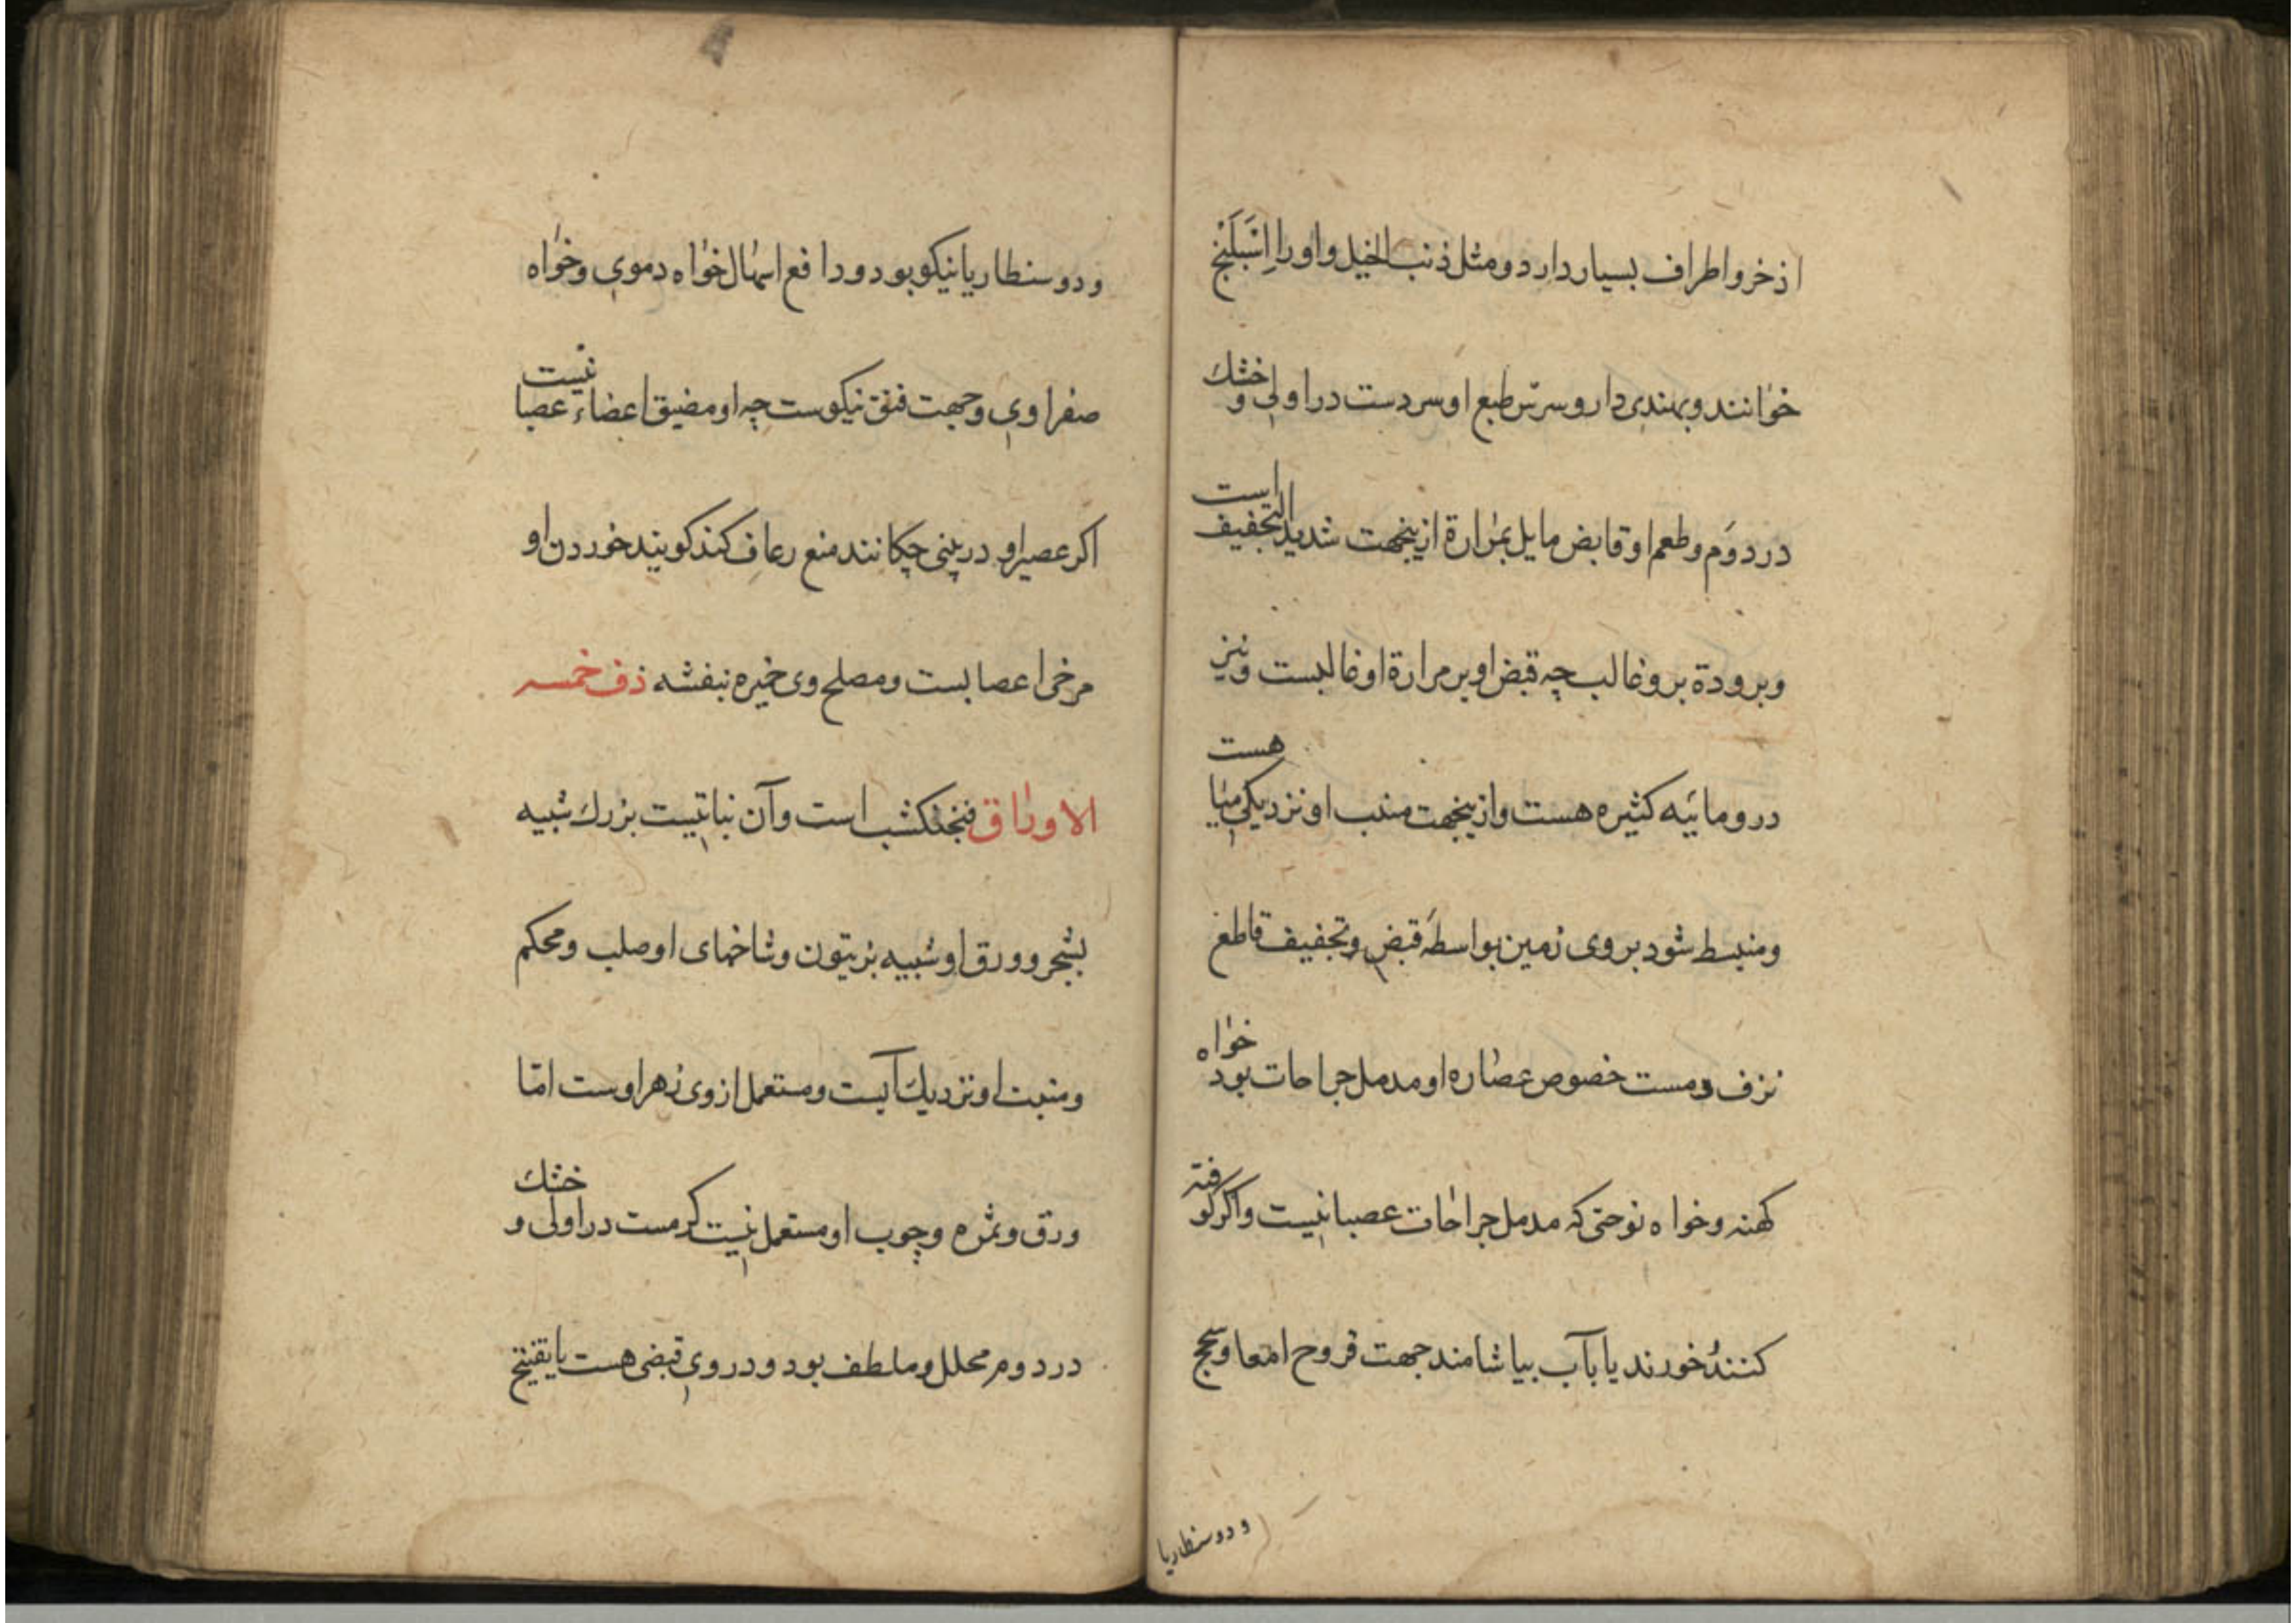 اذخر و اطراف بسیار دارد و مثل ذنب الخیل و او را اِنَسبَلَنج
خوانند و بهندی دار و سرس طبع او سردست در اولی و خشك
در دوَم و طعم او قابض مایل بمرارة ازینجهت شدید التجفیف است
و برودة برو غالب چه قبض او بر مرارة او غالبست و نیز
درو مائیه کثیره هست و ازینجهت منبت او نزدیکی میٰا هست
و منبسط شود بروی زمین بواسطهَ قبض و تجفیف قاطع
نزف دمست خصوص عصاره او مدمل جراحات بود خواه
کهنه و خواه نو حتی که مدمل جراحات عصبانیست و اگر کوفته
کنند خورند یا بآب بیاشامند جهت قروح امعا و سحج
و دوسنطاریا
و دوسنطاریا نیکو بود و دافع اسهال خواه دموی و خواه
صفراوی و جهت فتق نیکوست چه او مضیق اعضاء عصبانیست
اکر عصیر او در بینی چکانند منع رعاف کند کویند خوردن او
مرخی اعصابست و مصلح وی خمیره بنفشه ذف خمسه
الاوراق فنجنکشب است و آن نباتیست بزرك شبیه
بشجر و ورق او شبیه بزیتون و شاخهای او صلب و محکم
و منبت او نزدیك آبست و مستعمل از وی زهر اوست امّا
ورق و ثمره و چوب او مستعمل نیست کرمست در اولی و خشك
در دوم محلل و ملطف بود و در وی قبضی هست با تفتیح